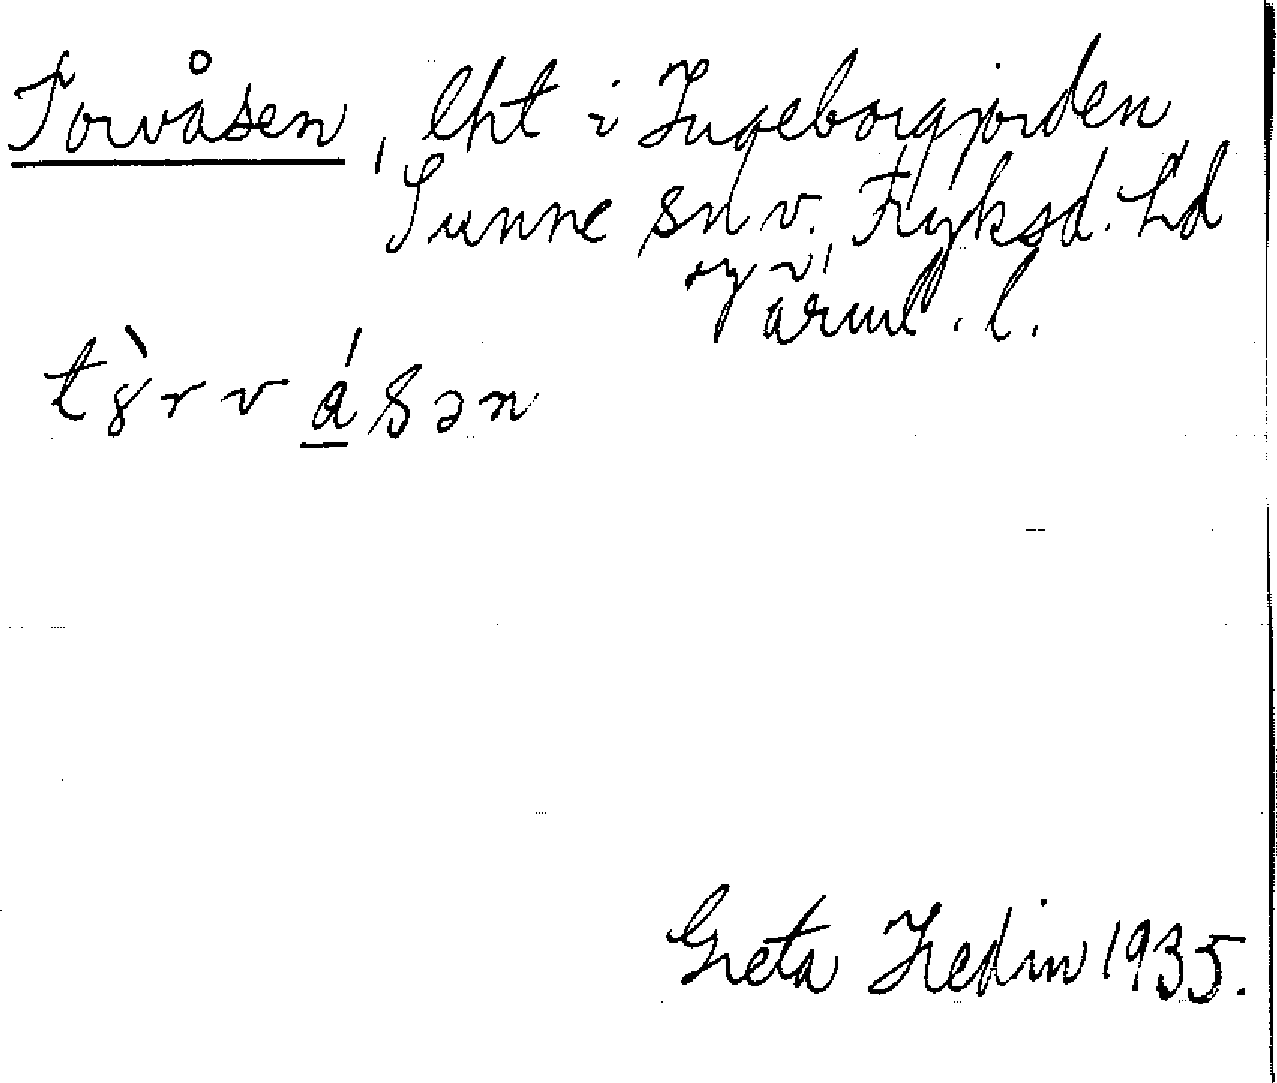 Torvåsen, lht i Ingeborgjorden
Sunne sn v. Fryksd. hd
Värml. l.
tȣ̀rvásən
Greta Hedin 1935.